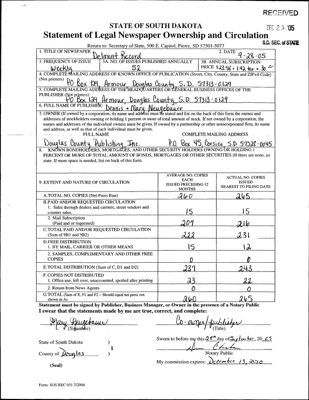 RECEIVED
DEC 23 '05
S.D. SEC. of STATE
STATE OF SOUTH DAKOTA
Statement of Legal Newspaper Ownership and Circulation
Return to: Secretary of State, 500 E. Capitol, Pierre, SD 57501-5077
1. TITLE OF NEWSPAPER Delmont Record
2. DATE 9-28-05
3. FREQUENCY OF ISSUE Weekly
3A. NO. OF ISSUES PUBLISHED ANNUALLY 52
3B. ANNUAL SUBSCRIPTION PRICE
4. COMPLETE MAILING ADDRESS OF KNOWN OFFICE OF PUBLICATION (Street, City, County, State and ZIP+4 Code) (Not printers)
PO Box 129, Armour, Douglas County, S.D. 57313-0129
5. COMPLETE MAILING ADDRESS OF THE HEADQUARTERS OR GENERAL BUSINESS OFFICES OF THE PUBLISHER (Not printer)
PO Box 129 Armour, Douglas County, S.D. 57313-0129
6. FULL NAME OF PUBLISHER: Dennis + Mary Neugebauer
7. OWNER (If owned by a corporation, its name and address must be stated and list on the back of this form the names and
addresses of stockholders owning or holding 1 percent or more of total amount of stock. If not owned by a corporation, the
names and addresses of the individual owners must be given. If owned by a partnership or other unincorporated firm, its name
and address, as well as that of each individual must be given.
FULL NAME
COMPLETE MAILING ADDRESS
Douglas County Publishing Inc.
PO Box 45, Corsica, SD 57328-0045
8. KNOWN BONDHOLDERS, MORTGAGEES, AND OTHER SECURITY HOLDERS OWNING OR HOLDING 1
PERCENT OR MORE OF TOTAL AMOUNT OF BONDS, MORTGAGES OR OTHER SECURITIES (If there are none, so
state. If more space is needed, list on back of this form.
9. EXTENT AND NATURE OF CIRCULATION
AVERAGE NO. COPIES EACH ISSUED PRECEDING 12 MONTHS
ACTUAL NO. COPIES ISSUED NEAREST TO FILING DATE
A. TOTAL NO. COPIES (Net Press Run) 260 265
B. PAID AND/OR REQUESTED CIRCULATION
1. Sales through dealers and carriers, street vendors and
counter sales. 15 15
2. Mail Subscription
(Paid and or requested) 207 216
C. TOTAL PAID AND/OR REQUESTED CIRCULATION
(Sum of 9B1 and 9B2) 222 231
D. FREE DISTRIBUTION
1. BY MAIL, CARRIER OR OTHER MEANS 15 12
2. SAMPLES, COMPLIMENTARY AND OTHER FREE
COPIES 0 0
E. TOTAL DISTRIBUTION (Sum of C, D1 and D2) 237 243
F. COPIES NOT DISTRIBUTED
1. Office use, left over, unaccounted, spoiled after printing 23 22
2. Return from News Agents 0 0
G. TOTAL (Sum of E, F1 and F2 – Should equal net press run
shown in A) 260 265
Statement must be signed by Publisher, Business Manager, or Owner in the presence of a Notary Public
I swear that the statements made by me are true, correct, and complete:
Mary Neugebauer
(Signature)
Co-owner/publisher
(Title)
State of South Dakota )
§
County of Douglas )
(Seal)
Sworn to before me this 28th day of September, 20 05
Notary Public
My commission expires: December 13, 2010
Form: SOS REC 051 7/2004